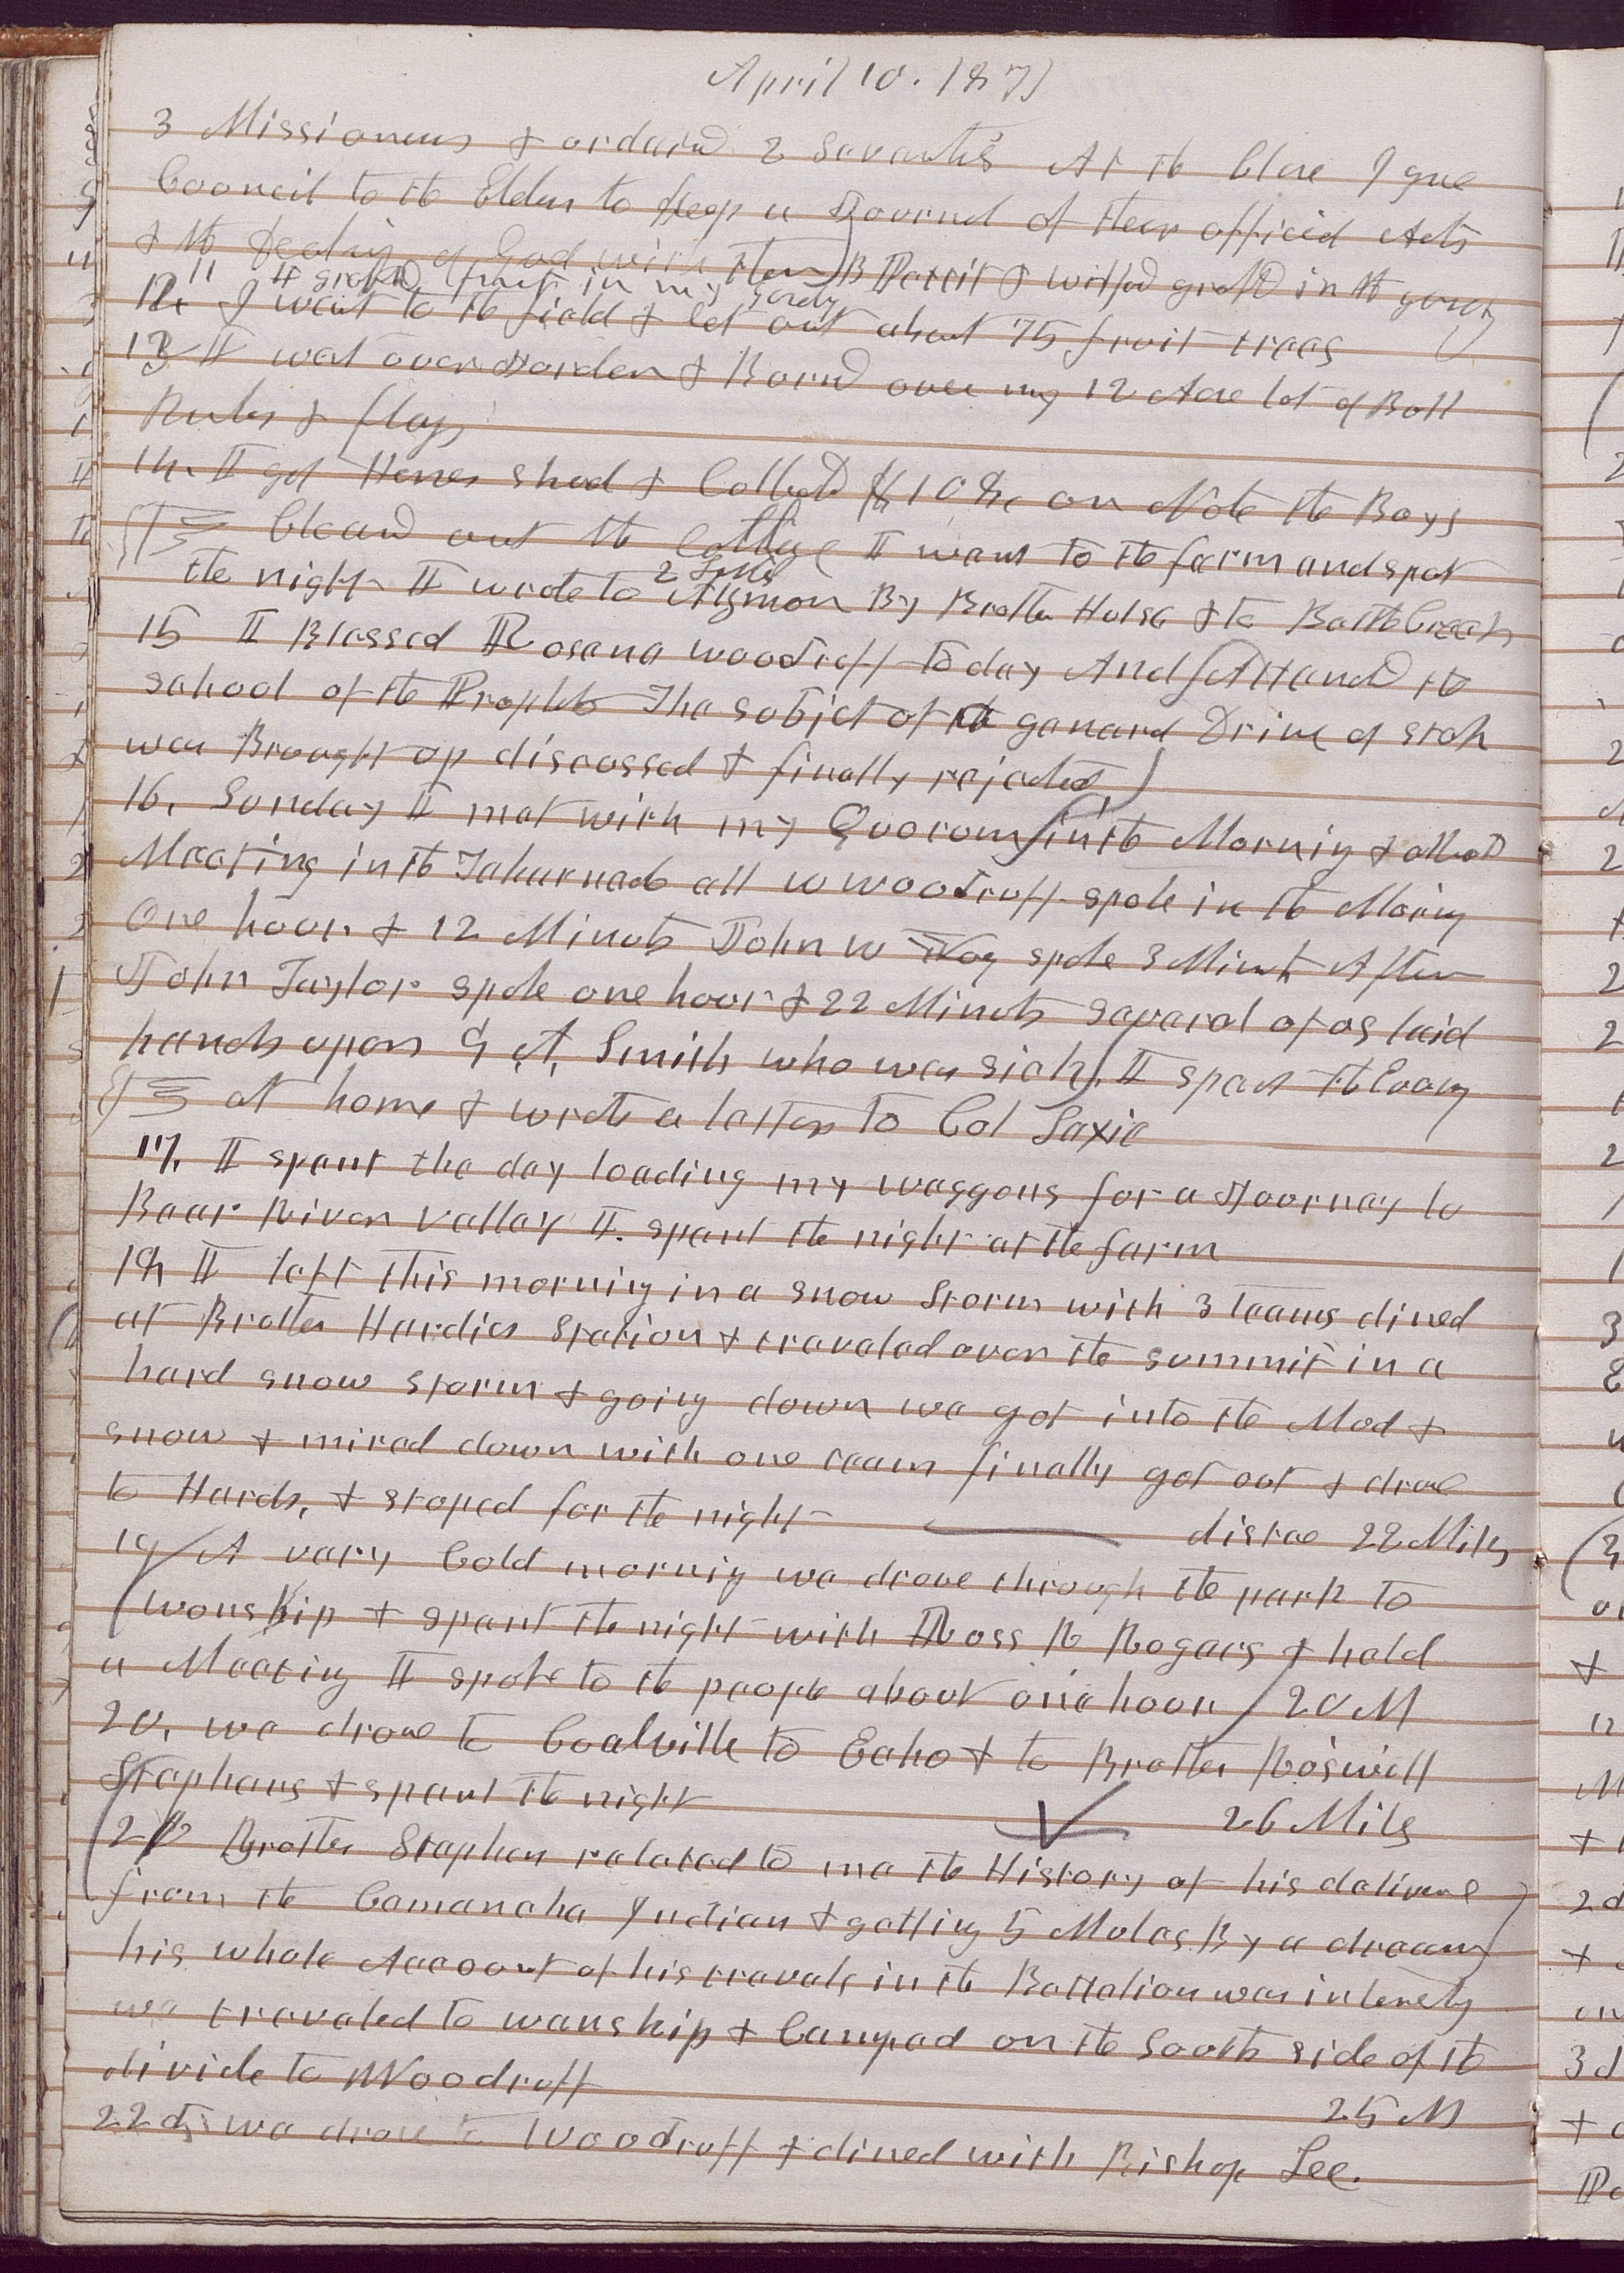 April 10. 1871
3 Missioneres & ordaind 2 Seventies At the Close I gave
Council to the Elders to keep a Journal of their official Acts
& the dealing of God with them) B Pettit & Wilford graftd in the garden
11 & grafted fruit in my garden
12. I went to the field & set out about 75 fruit trees
13 I went over Jordan & Burnd over my 12 Acre lot of Bull
Rushes & flags
14. I got Horses shod & Collectd $108, on Note the Boys
Cleand out the cottage I went to the farm and spent
the night I wrote to Azmon By Brother Hulse & to Battle Creek
2 Letters
15 I Blessed Rosana Woodruff to day And Attend the
school of the Prophets The subject of a general Drive of stock
was Brought up discussed & finally rejected)
16, Sunday I met with my Quorum in the Morning & attend
Meeting in the Tabernacle all W Woodruff spoke in the Morning
One hour & 12 Minuts John W Young spoke 3 Minuts After
John Taylor spoke one hour & 22 Minuts several of us laid
hands upon G. A. Smith who was sick). I spent the Evening
at home & wrote a letter to Col Saxie
17, I spent the day loading my waggons for a Journey to
Bear River Valley I. spent the night at the farm
18 I left this morning in a snow Storm with 3 teams dined
at Brother Hardies Station & traveled over the summit in a
hard snow storm & going down we got into the Mud &
snow & mired down with one team finally got out & drove
to Hards, & stoped for the night distae 22 Miles
19 A very Cold morning we drove through the park to
Wanship & spent the night with Ross R Rogers & held
a Meeting I spoke to the people about one hour 20 M
20, we drove to Coalville to Echo & to Brother Roswell
Stephens & spent the night 26 Miles
21 Brother Stephen related to me the History of his deliverance
from the Camancha Indian & getting 5 Mules By a dream)
his whole Account of his travels in the Battalion was intensely
we traveled to wanship & Camped on the South side of the
divide to Woodruff 25 M
22d we drove to Woodruff & dined with Bishop Lee.